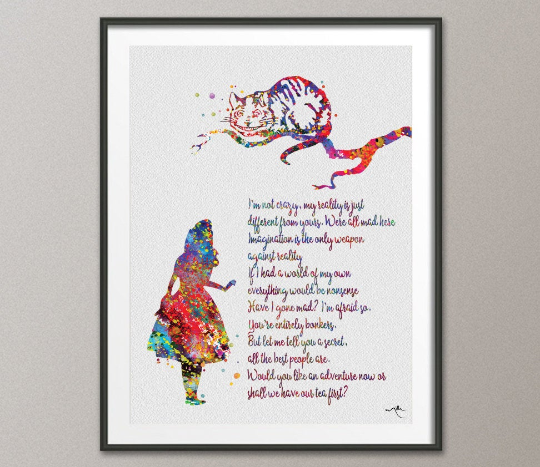 I'm not crazy, my reality is just
different from yours. We're all mad here
Imagination is the only weapon
against reality
If I had a world of my own
everything would be nonsense
Have I gone mad? I'm afraid so.
You're entirely bonkers.
But let me tell you a secret,
all the best people are.
Would you like an adventure now or
shall we have our tea first?